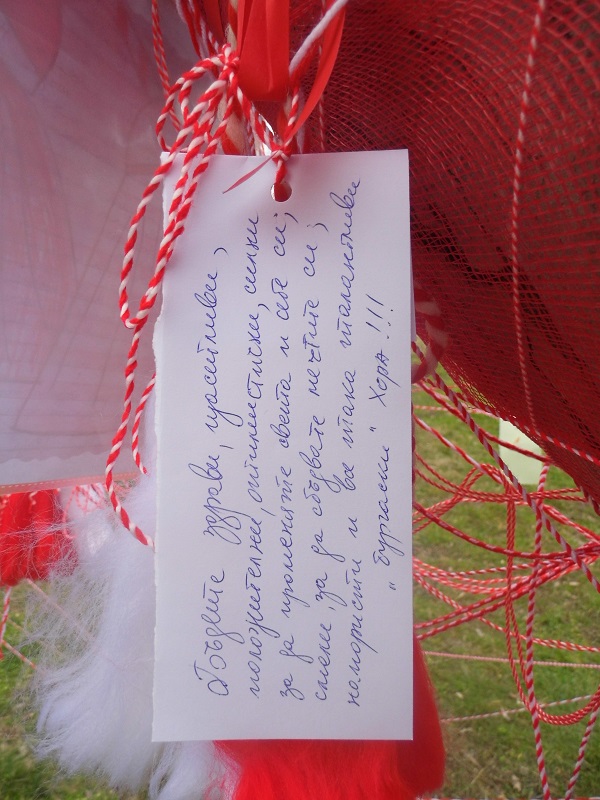 Бъдете здрави, щастливи,
положителни, оптимистични, силни
за да променяте света и себе си;
смели, за да сбъдвате мечтите си;
хумористи и все така талантливи
"Бургаски" Хора!!!